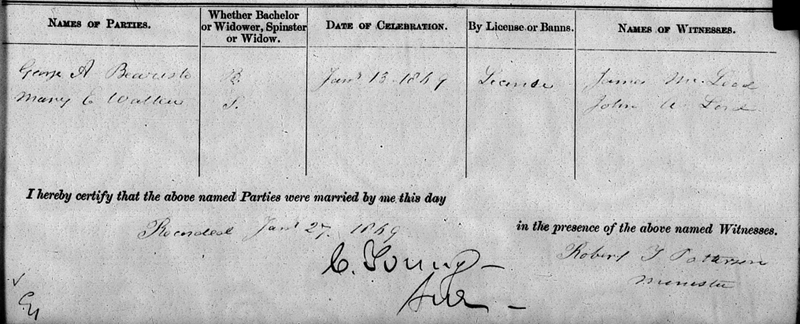 NAMES OF PARTIES.
Whether Bachelor or Widower, Spinster or Widow.
DATE OF CELEBRATION.
By License or Banns.
NAMES OF WITNESSES.
George A Bearisto B Jany 13 1869 License James McLeod
Mary E S. John W Lord
I hereby certify that the above named Parties were married by me this day
Recorded Jany 27, 1869 in the presence of the above named Witnesses.
C. Young Robert S Patterson
Sur Minister